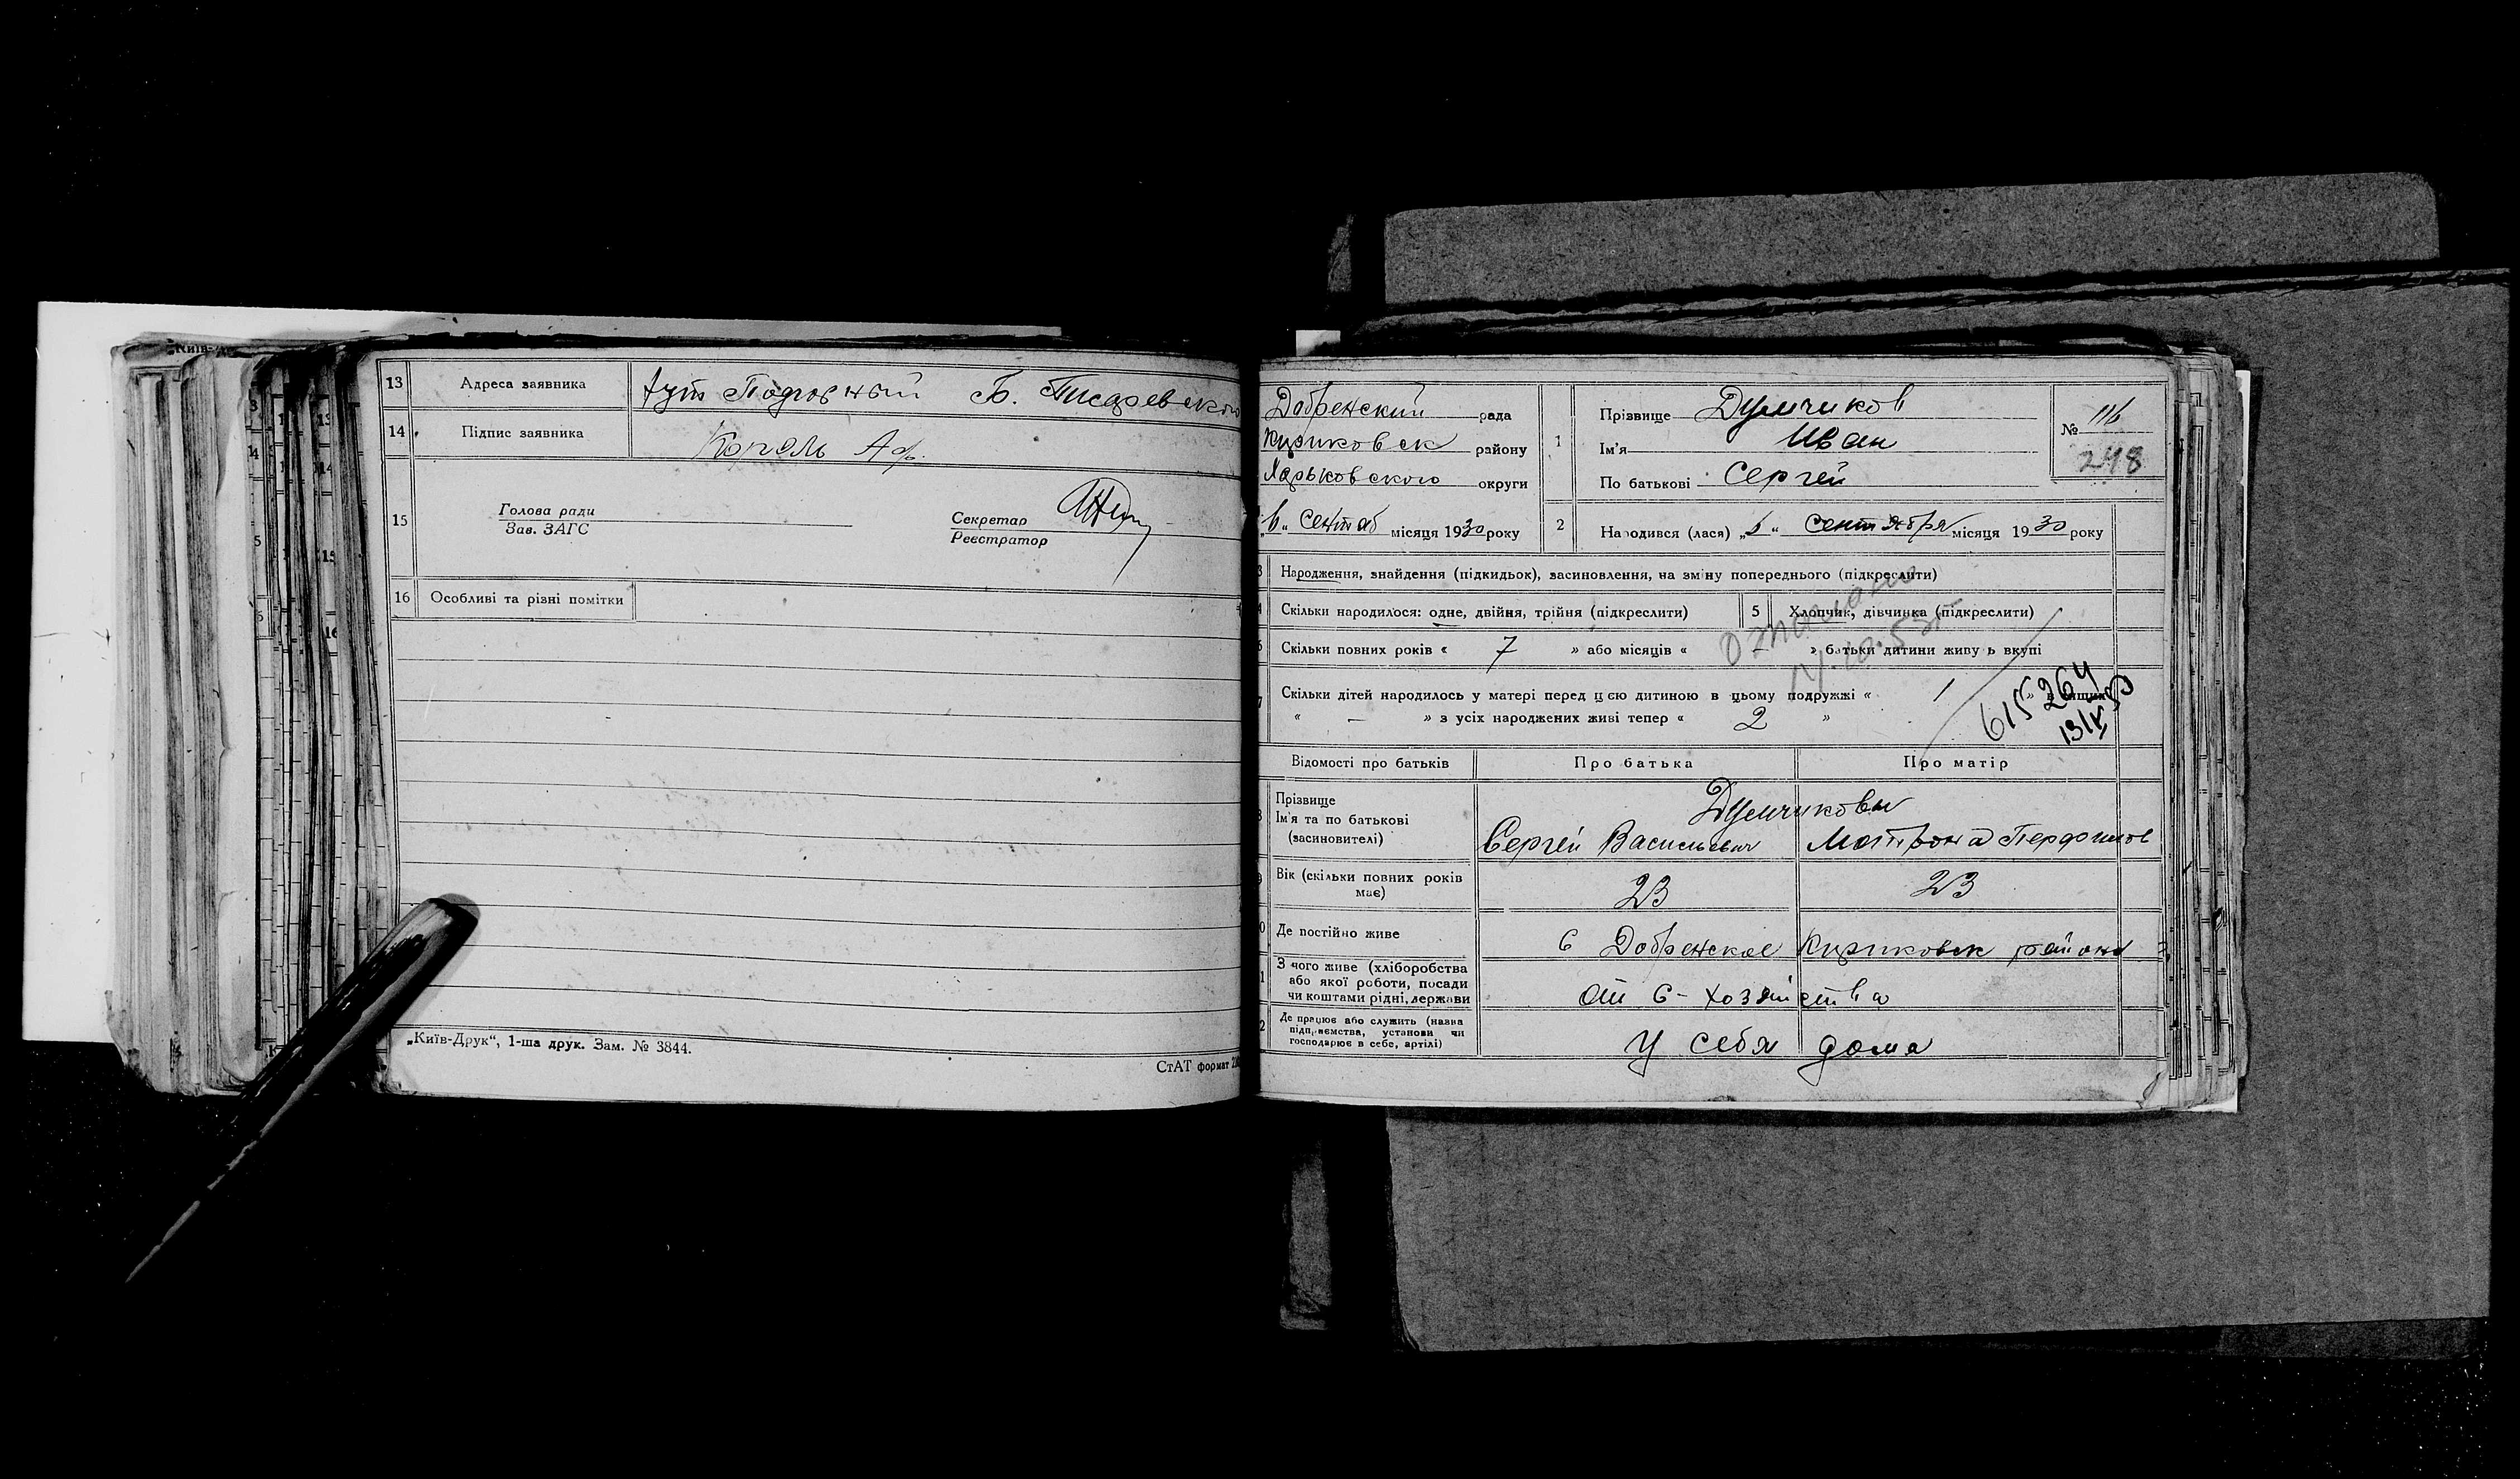 13 Адреса заявника хут Подговный Б. Писаревского
14 Підпис заявника Король Аф.
15 Голова ради
Зав. ЗАГС
Секретар
Реєстратор
16 Особливі та різні помітки
„Київ-Друк“, 1-ша друк. Зам. № 3844.
СтАТ формат
Добренский рада
Кириковск району
Харьковского округи
„6„ Сентяб місяця 1930 року
1 Прізвище Думчиков
Ім'я Иван
По батькові Сергей
№ 116
248
2 Народився (лася) „5“ Сентября місяця 1930 року
Народження, знайдення (підкидьок), засиновлення, на зміну попереднього (підкреслити)
Скільки народилося: одне, двійня, трійня (підкреслити)
5 Хлопчик, дівчинка (підкреслити)
Скільки повних років « 7 » або місяців « – » батьки дитини живуть вкупі
Скільки дітей народилось у матері перед цією дитиною в цьому подружжі « 1 »
« — » з усіх народжених живі тепер « 2 »
615 264
Відомості про батьків Про батька Про матір
Прізвище
Ім'я та по батькові
(засиновителі)
Думчиковы
Сергей Васильевич Матрона Перфилов
Вік (скільки повних років має) 23 23
Де постійно живе с Добренское Кириковск района
З чого живе (хліборобства
або якої роботи, посади
чи коштами рідні, держави
от с-хозяйства
Де працює або служить (назва
підприємства, установи чи
господарює в себе, артілі)
У себя дома